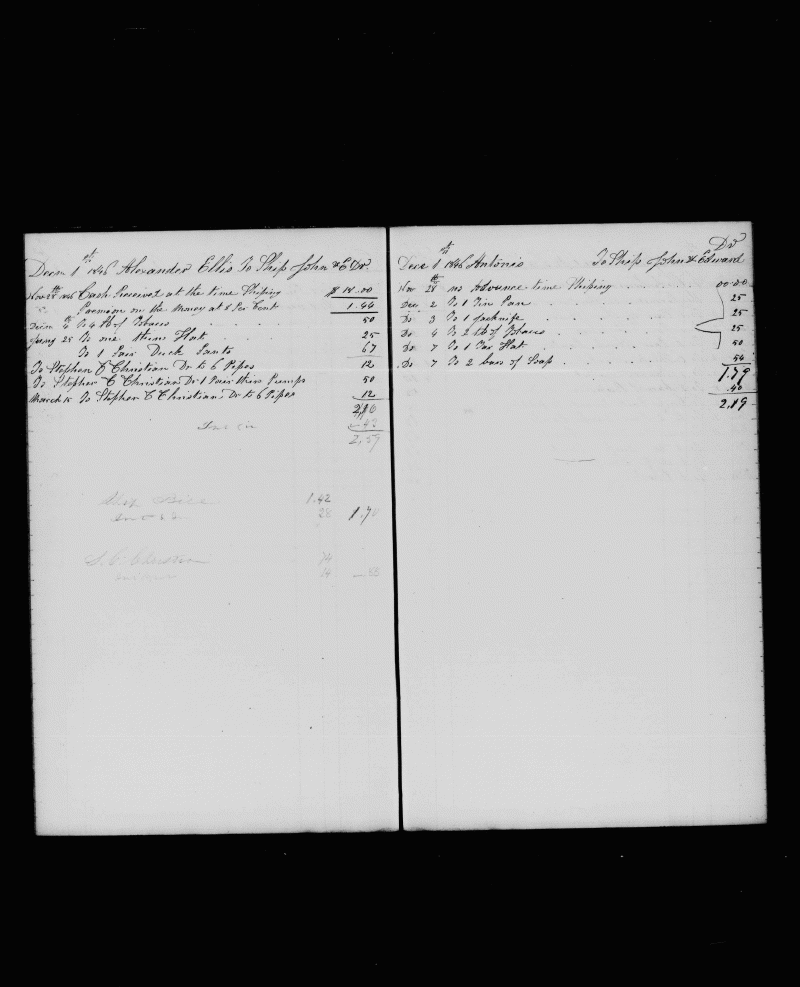 Decm 1st 1846 Alexander Ellis To Ship John & E Dr.
Nov 28th 1846 Cash Received at the time Shiping $ 18.00
Premium on the Money at 8 Per Cent 1.44
Decm 4th To 4 lb of Tobacco 50
25 To one thin Hat 25
To 1 Pair Duck Pants 67
To Stephen C Christian Dr to 6 Pipes 12
To Stephen C Christian Dr 1 Pair thin Pumps 50
March 15 To Stephen C Christians Dr to 6 Pipes 12
2,16
43
2,59
Ship Bill 1.42
28 1.70
S. C. Christian 74
14
Dr
Decm 1st 1846 Antonio To Ship John & Edward
Nov 28th no Advance time Shiping 00.00
Dec 2 To 1 Tin Pan 25
Do 3 To 1 Jacknife 25
Do 4 To 2 lb of Tobacco 25
Do 7 To 1 Tar Hat 50
Do 7 To 2 bars of Soap 54
1.79
.40
2,19